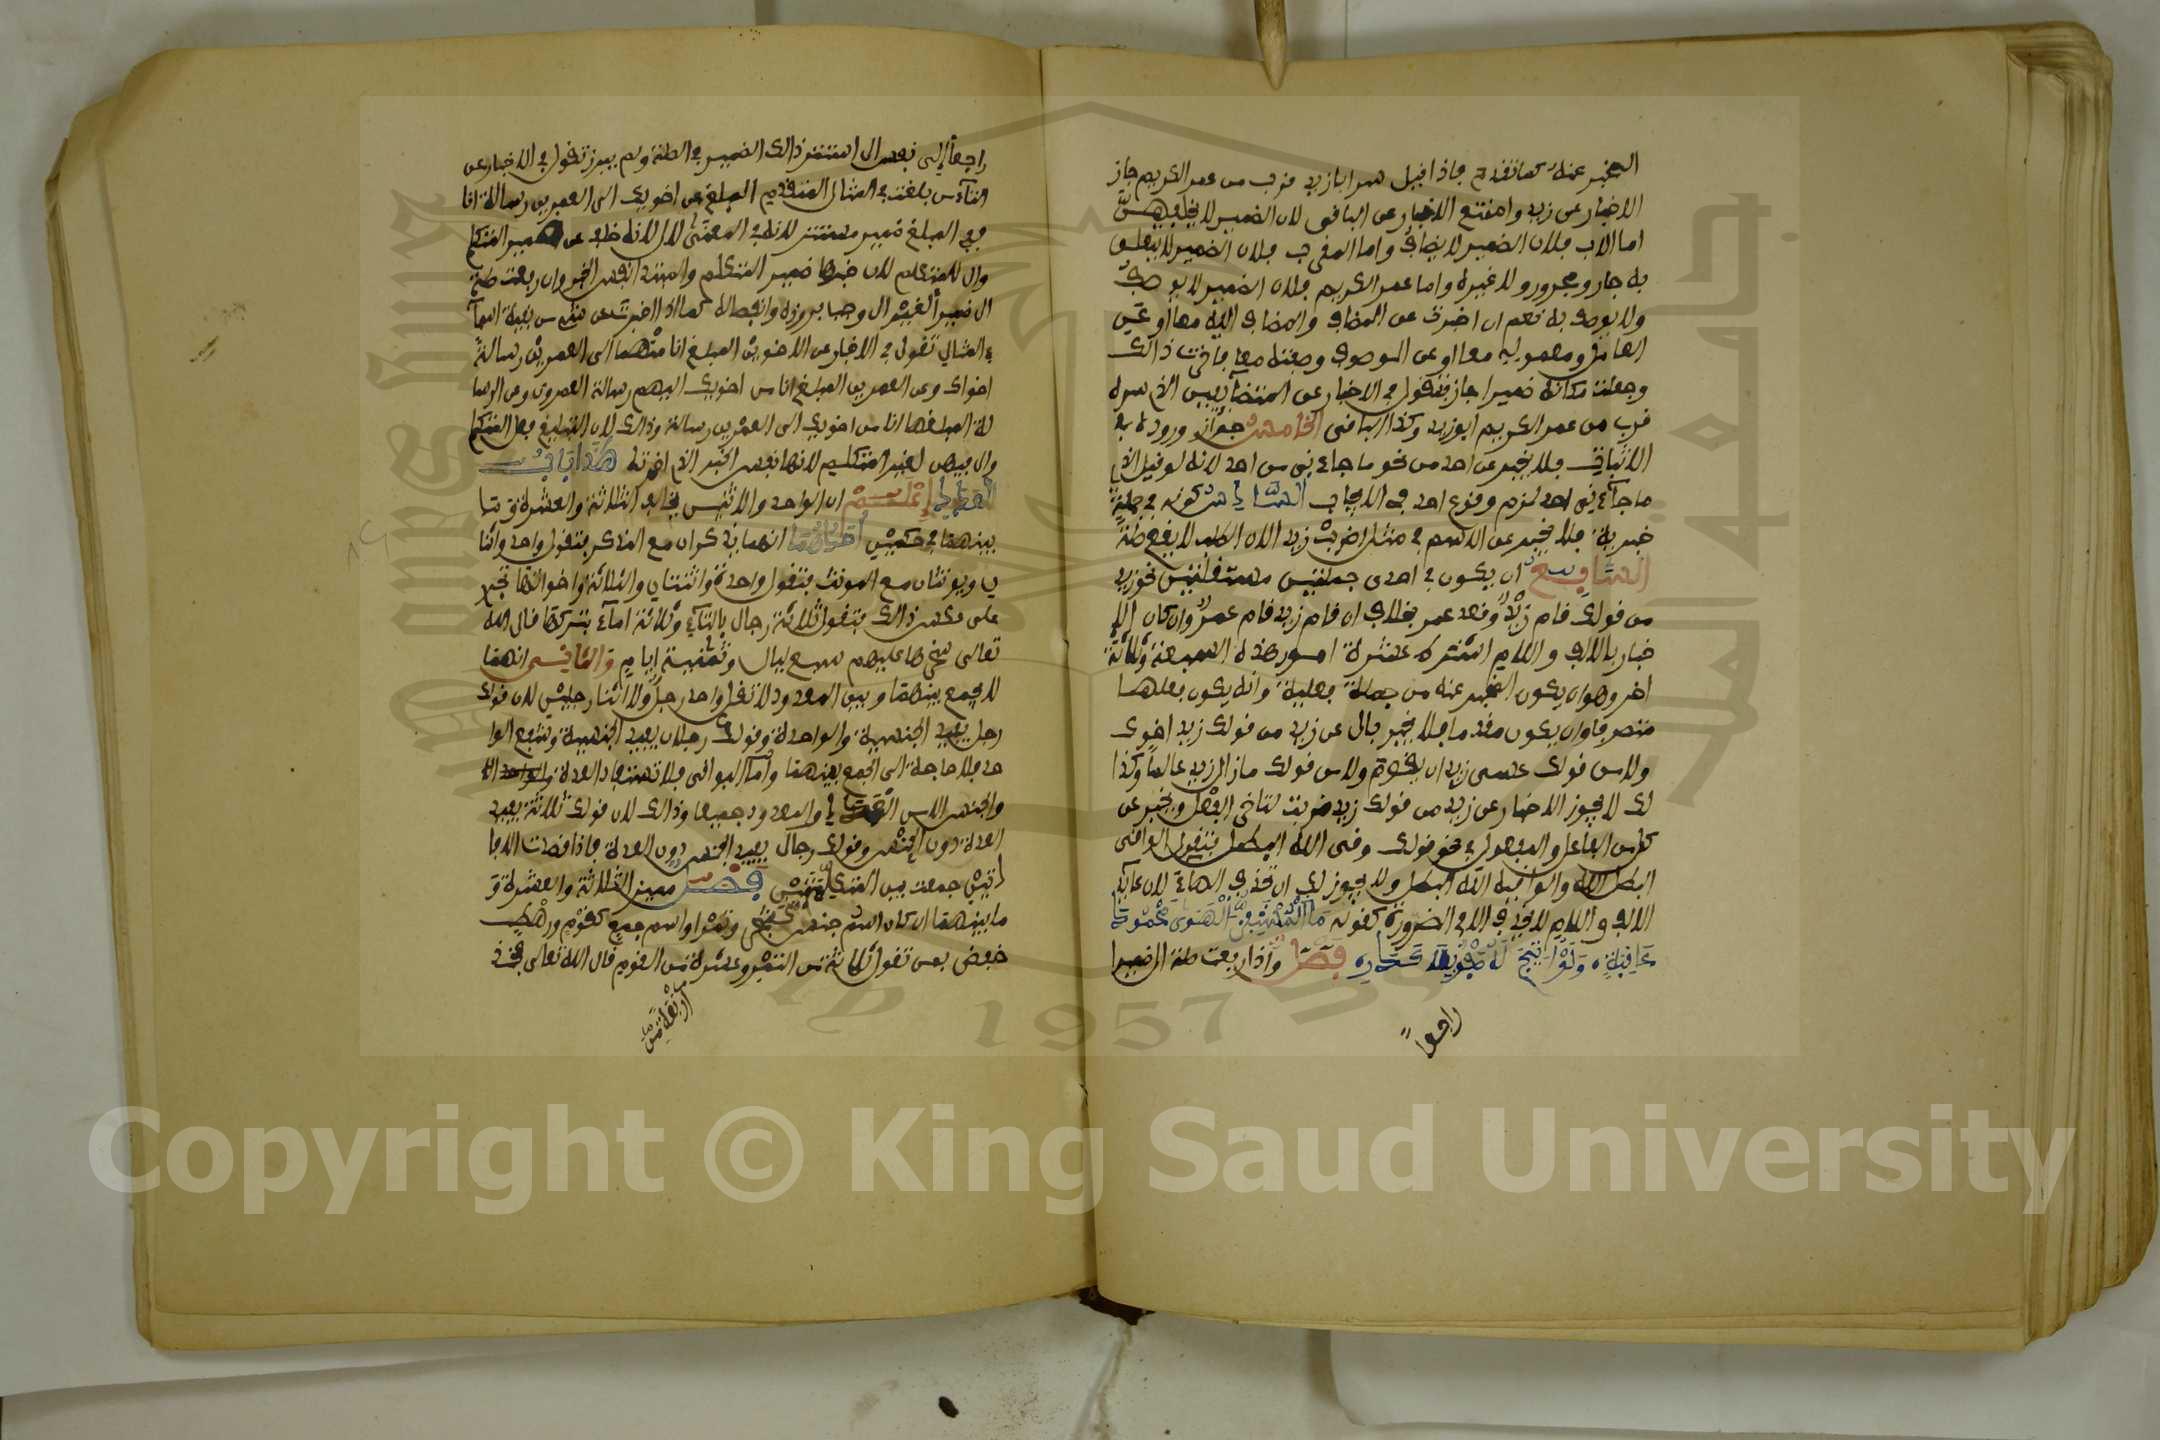 المخبر عنه كما تقدم فاذا قيل سر ابا زيد قرب من عمر الكريم جاز
الاخبار عن زيد وامتنع الاخبار عن الباقي لان الضمير لا يخلفهن
اما الاب فلان الضمير لا يضاف واما القرب فلان الضمير لا يتعلق
به جار ومجرور ولا غيره واما عمر الكريم فلان الضمير لا يوصف
ولا يوصف به نعم ان اخبرت عن المضاف والمضاف اليه معا او عن
العامل ومعموله معا او عن الموصوف وصفته معا فاخرت ذالك
وجعلت مكانه ضميرا جاز فتقول في الاخبار عن المتضايفين الذي سره
قرب من عمر الكريم ابو زيد وكذا الباقي الخامس جواز وروده في
الاثبات فلا يخبر عن احد من نحو ما جاءني من احد لانه لو قيل الذي
ما جآءني احد لزم وقوع احد في الايجاب السادس كونه في جملة
خبرية فلا يخبر عن الاسم في مثل اضرب زيد الان الطلب لا يقع صلة
السابع ان يكون في احدى جملتين مستقلتين نحو زيد
من قولك قام زيد وقعد عمر بخلاف ان قام زيد قام عمر وان كان الا
خبار بالالف واللام اشترط عشرة امور هذه السبعة وثلاثة
اخر وهو ان يكون المخبر عنه من جملة فعلية وانه يكون فعلها
متصرفا وان يكون مقدما فلا يخبر بال عن زيد من قولك زيد اخوك
ولا من قولك عسى زيد ان يقوم ولا من قولك ما زال زيد عالما وكذا
لك لا يجوز الاخبار عن زيد من قولك زيد ضربت لتاخر الفعل ويخبر عن
كل من الفاعل والمفعول في نحو قولك وقى الله البطل فتقول الواقي
البطل الله والواقيه الله البطل ولا يجوز لك ان تحذف الهاء لان عائد
الالف واللام لا يحذف الا في الضرورة كقوله مَا الْمُسْتَفِزُّ الْهَوَى مَحْمُودَ
عَاقِبَةٍ وَلَوْ اتِيحَ لَهُ صَفْوٌ بِلَا كَدَرِ فصل واذا رفعت صلة ال ضميرا
راجعا
راجعا إلى نفس ال استتر ذالك الضمير في الصلة ولم يبرز تقول في الاخبار عن
التآء من بلغت في المثال المتقدم المبلغ من اخويك الى العمرين رسالة انا
ففي المبلغ ضمير مستتر لانه في المعنى لال لانه خلف عن ضمير المتكلم
وال للمتكلم لان خبرها ضمير المتكلم والمبتدا نفس الخبر وان رفعت صلة
ال ضمير الغير ال وجب بروزه وانفصاله كما اذا اخبرت عن شيء من بقية اسمآ
ء المثال تقول في الاخبار عن الاخوين المبلغ انا منهما الى العمرين رسالة
اخواك وعن العمرين المبلغ انا من اخويك اليهم رسالة العمرون وعن الرسا
لة المبلغها انا من اخويك الى العمرين رسالة وذالك لان التبليغ فعل المتكلم
وال فيهن لغير المتكلم لانها نفس الخبر الذي اخرته هَذَا بَابُ
العدد إِعْلَمْ ان الواحد والاثنين يخالف الثلاثة والعشرة وما
بينهما في حكمين أَحَدُهُمَا انهما يذكران مع المذكر فتقول واحد واثنا
ن ويونثان مع المونث فتقول واحدة واثنتان والثلاثة واخواتها تجر
على عكس ذالك فتقول ثلاثة رجال بالتآء وثلاثة امآء بتركها قال الله
تعالى سخرها عليهم سبع ليال وثمنية ايام والثاني انهما
لا يجمع بينهما وبين المعدود لا تقل واحد رجل ولا اثنا رجلين لان قولك
رجل يفيد الجنسية والواحدة وقولك رجلان يفيد الجنسية وشفع الوا
حد فلا حاجة الى الجمع بينهما وأما البواقي فلا تستفاد العدة
والجنس الا من العدد والمعدود جميعا وذالك لان قولك ثلاثة يفيد
العدة دون الجنس وقولك رجال يفيد الجنس دون العدة فاذا قصدت الافا
دتين جمعت بين الكلمتين فصل مميز الثلاثة والعشرة و
ما بينهما ان كان اسم جنس كشجر وتمر او اسم جمع كقوم ورهط
خفض بمن تقول ثلاثة من التمر وعشرة من القوم قال الله تعالى فخذ
اربعة من